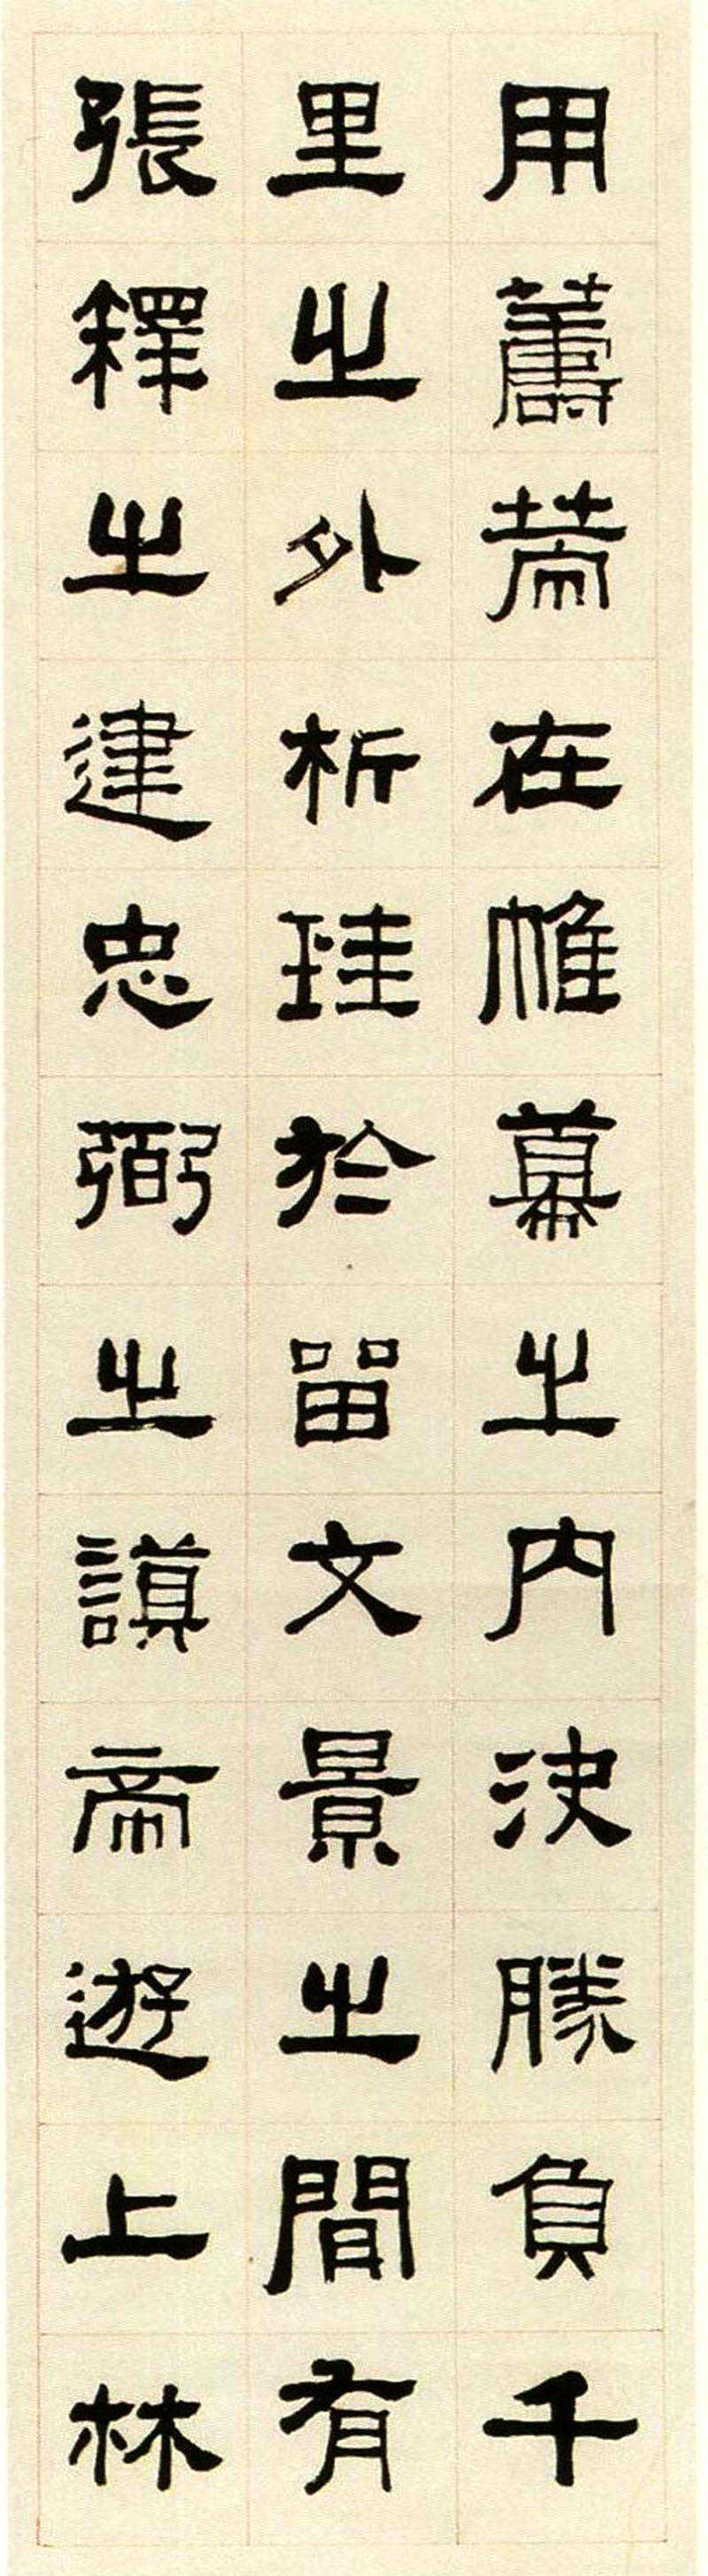 用籌策在帷幕之内決勝負千
里之外析珪於留文景之間有
張釋之建忠弼之謨帝遊上林